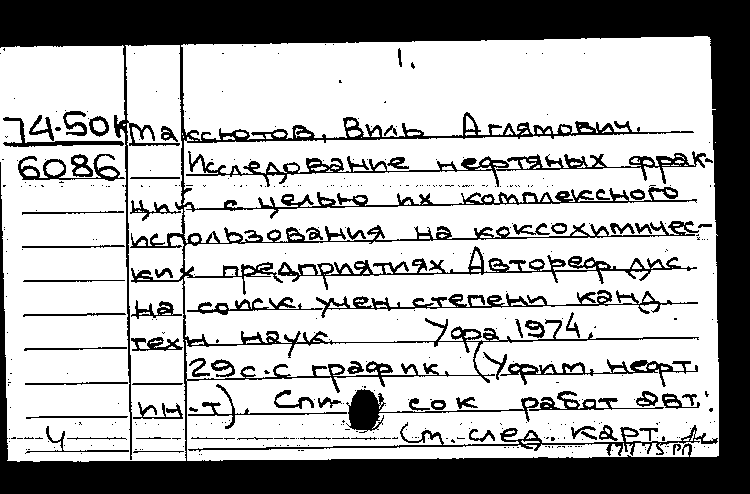 1.
74-50к Максютов, Виль Аглямович.
6086 Исследование нефтяных фрак-
ций с целью их комплексного
использования на коксохимичес-
ких предприятиях. Автореф. дис.
на соиск. учен. степени канд.
техн. наук. Уфа, 1974.
29 с. с график. (Уфим. нефт.
ин-т). Спи- сок работ авт.:
4 См. след. карт.